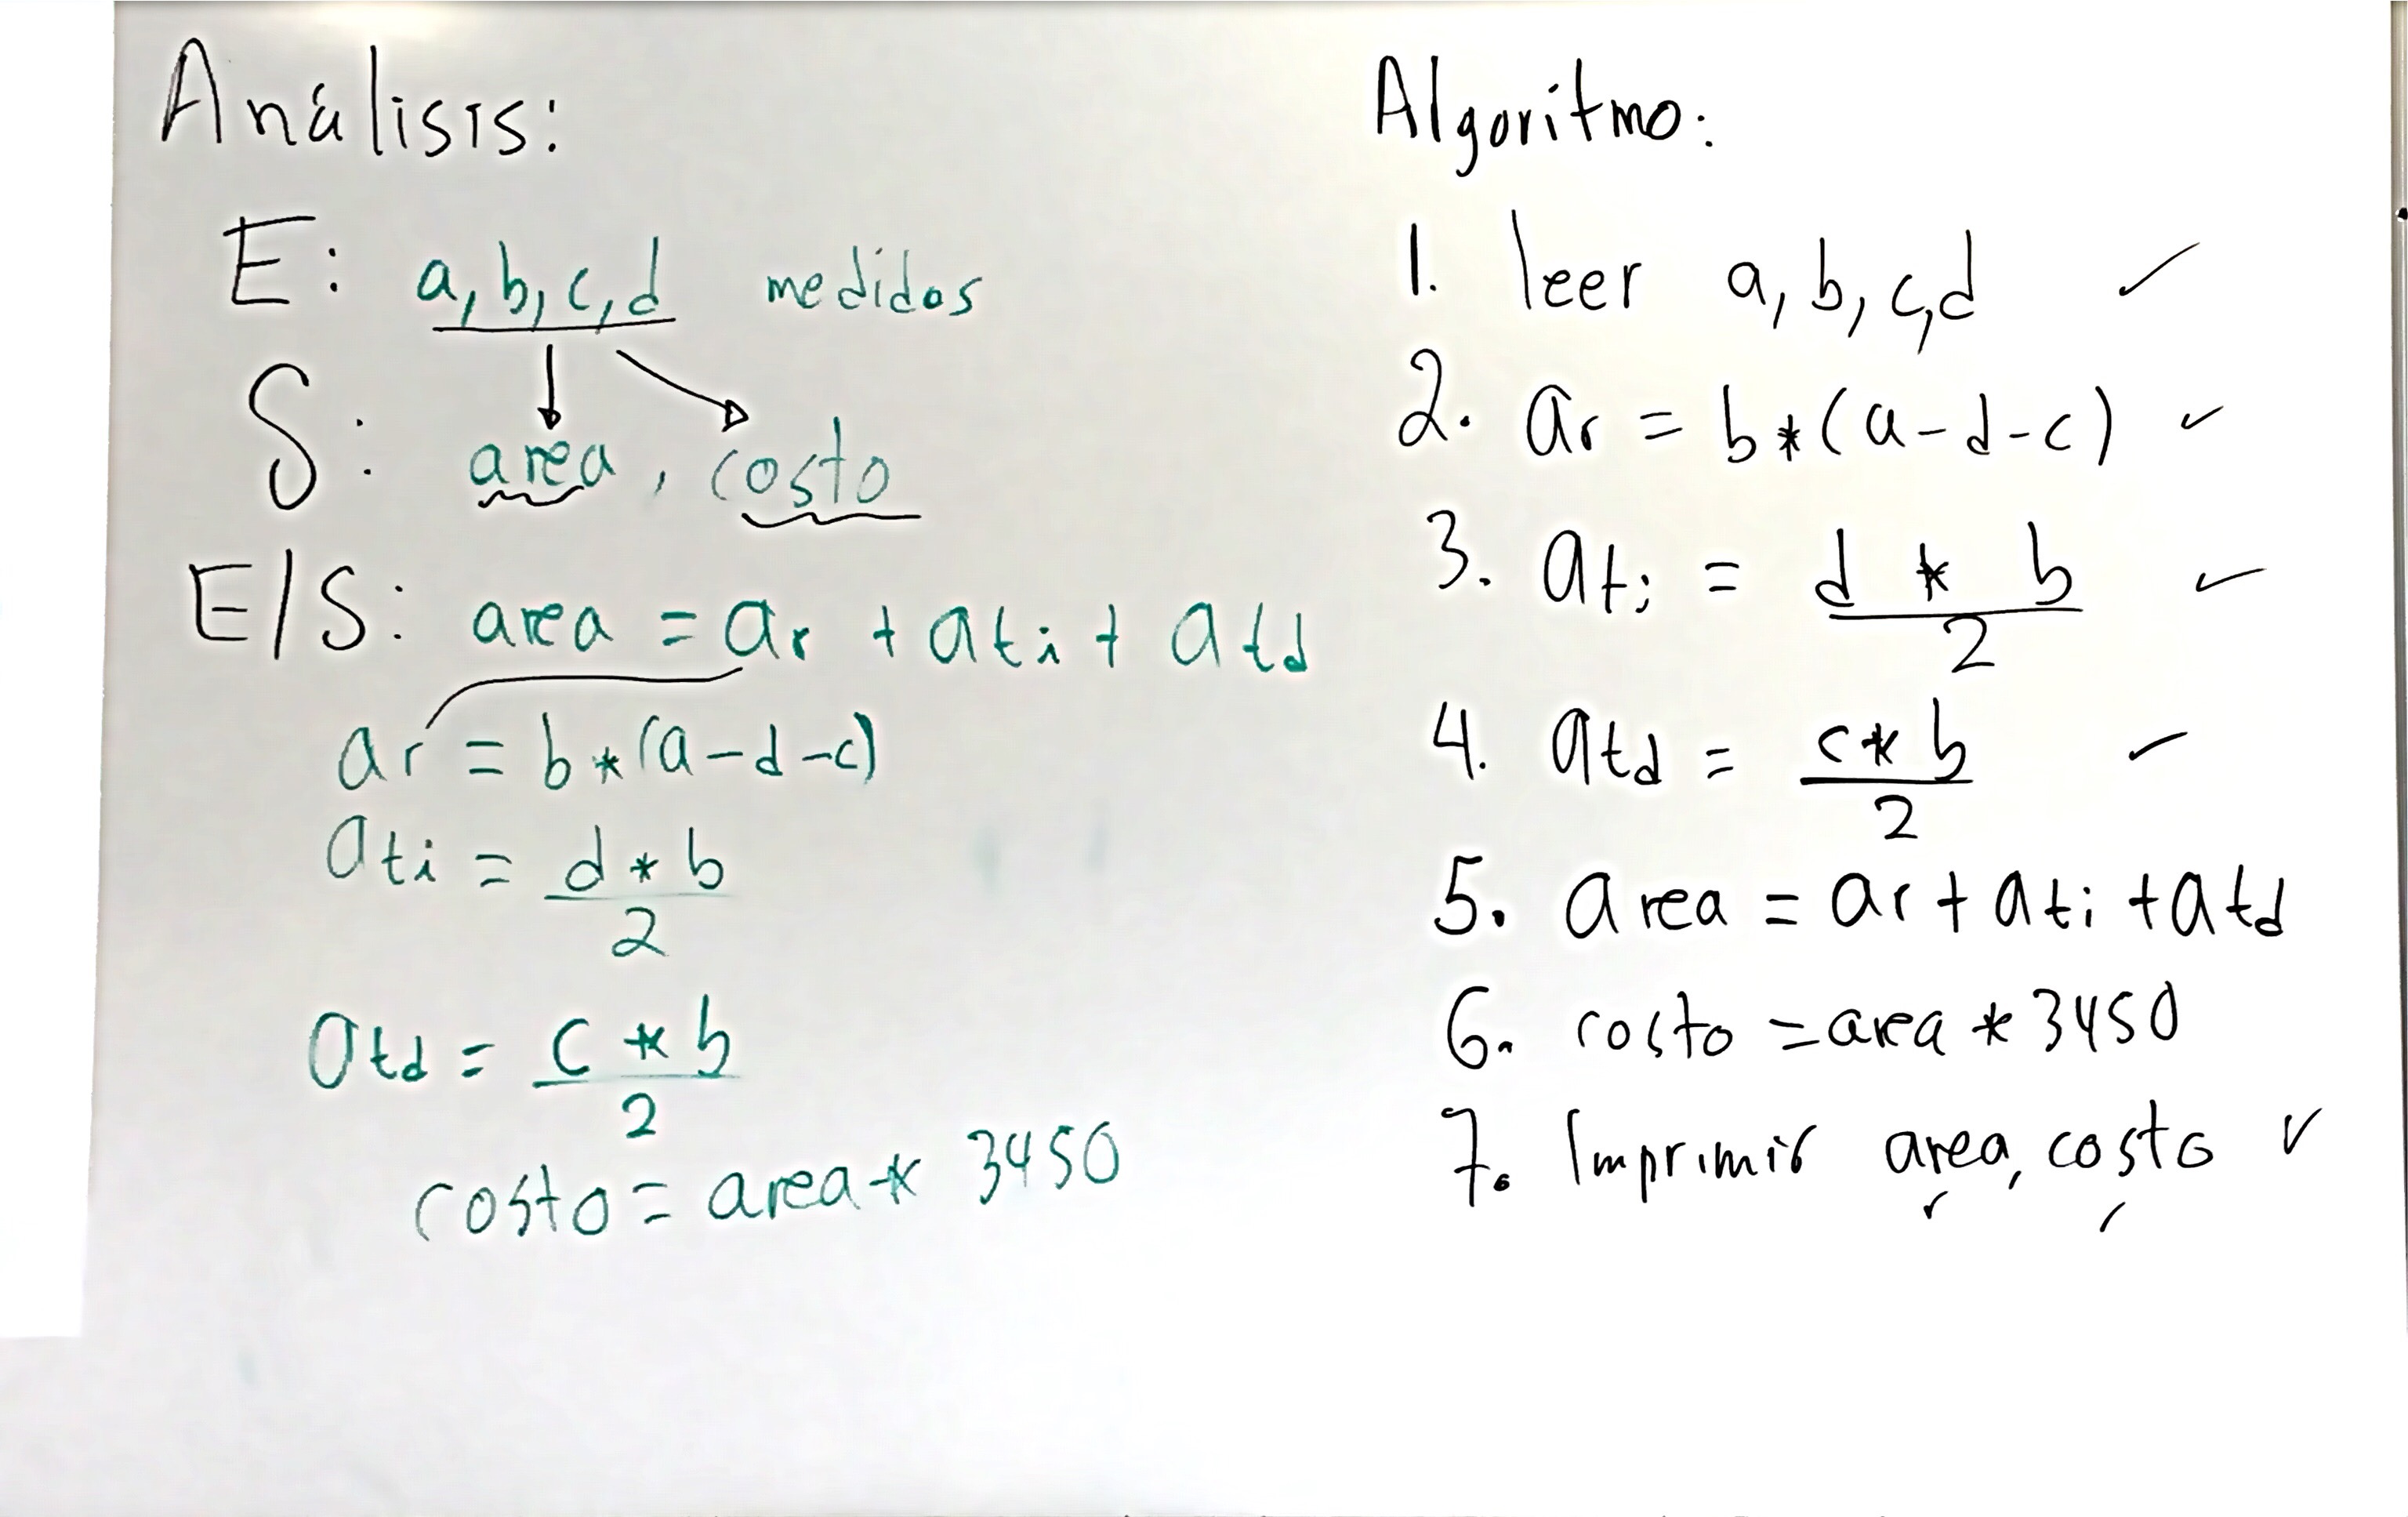 Análisis:
E: a, b, c, d medidas
S: area, costo
E/S: area = ar + ati + atd
ar = b*(a-d-c)
ati = d * b
2
atd = c * b
2
costo = area * 3450
Algoritmo:
1. leer a, b, c, d
2. ar = b*(a-d-c)
3. ati = d * b
2
4. atd = c * b
2
5. area = ar + ati + atd
6. costo = area * 3450
7. Imprimir area, costo